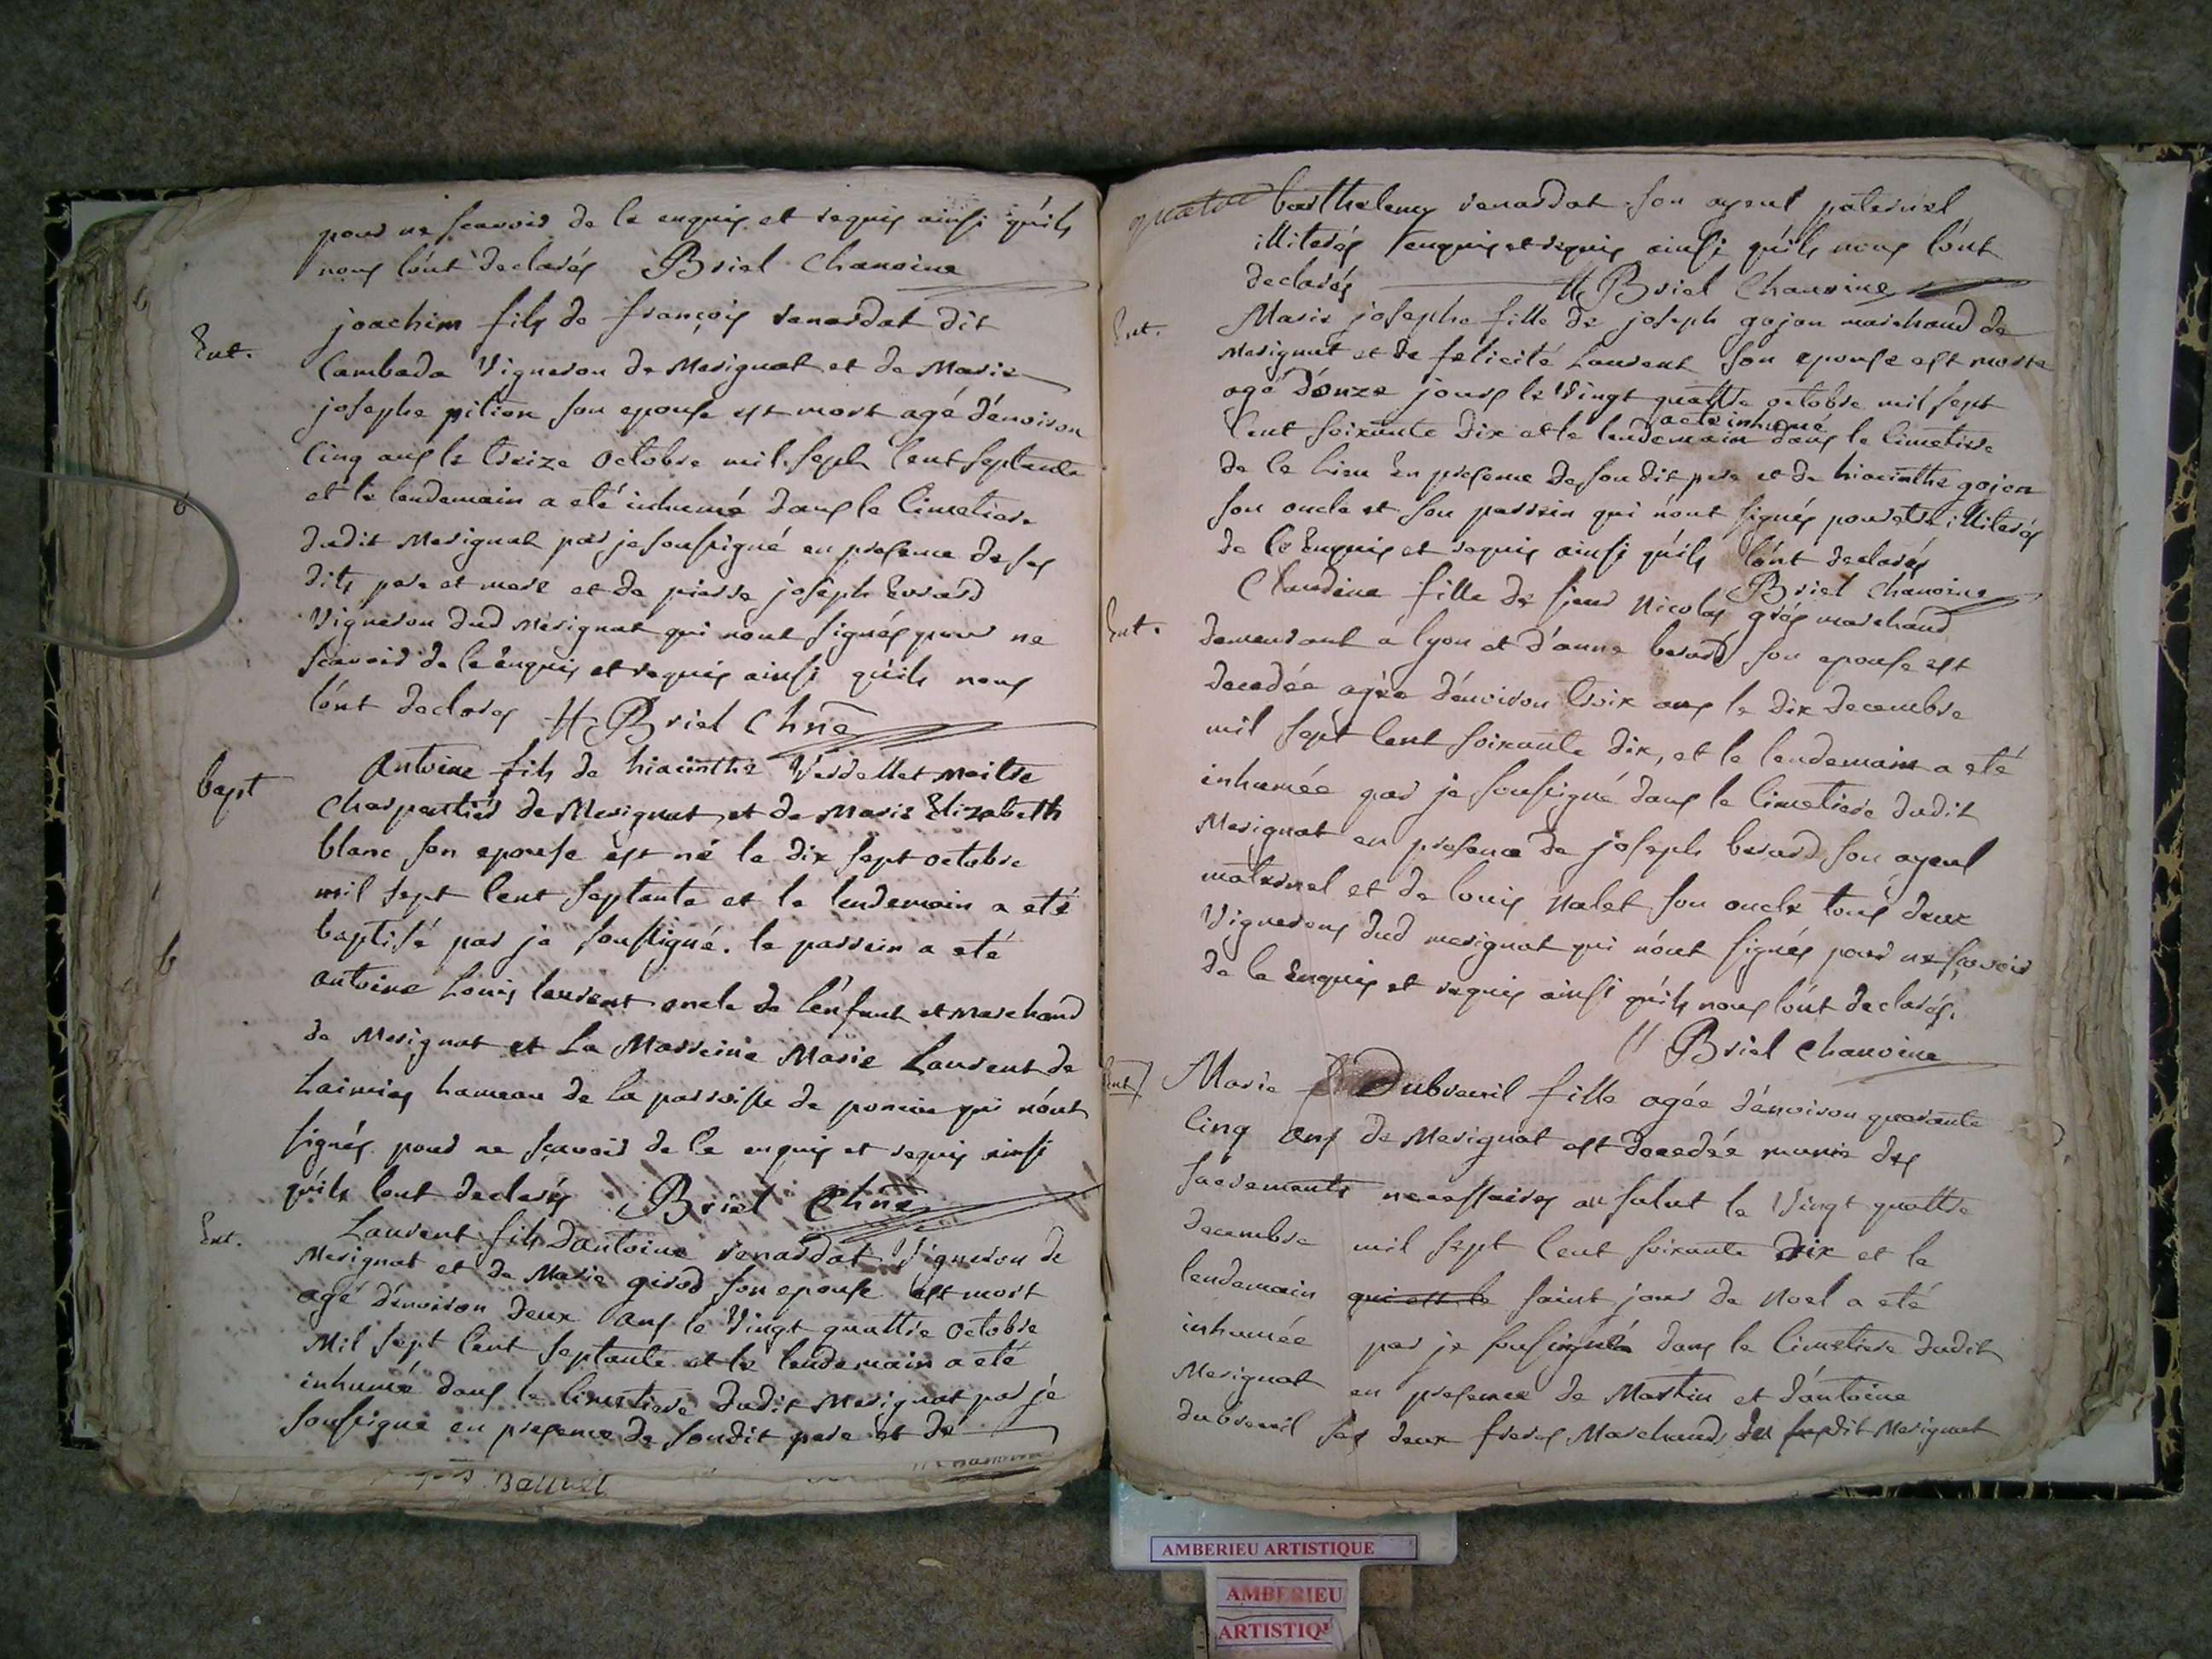 pour ne scavoir de ce enquis et requis ainsi qu'ils
nous l'ont declarés Briel Chanoine
Ent.
joachim fils de françois renardat dit
Cambada Vigneron de Merignat et de Marie
josephe pition son epouse est mort agé d'environ
cinq ans le treize octobre mil sept cent septante
et le lendemain a eté inhumé dans le cimetiere
dudit Merignat par je soussigné en presence de ses
dits pere et mere et de pierre joseph Evrard
Vigneron dud Merignat qui n'ont signés pour ne
scavoir de ce Enquis et requis ainsi qu'ils nous
l'ont declarés Briel Chne
bapt
Antoine fils de hiacinthe Verdellet maitre
Charpentier de Merignat et de Marie Elizabeth
blanc son epouse est né le dix sept octobre
mil sept cent septante et le lendemain a eté
baptisé par je soussigné. le parrein a eté
antoine Louis laurent oncle de l'enfant et Marchand
de Merignat et La Marreine Marie Laurent de
hameau de la parroisse de poncin qui n'ont
signés pour ne sçavoir de ce enquis et requis ainsi
qu'ils l'ont declarés Briel Chne
Ent.
Laurent fils d'antoine renardat Vigneron de
Merignat et de Marie girod son epouse est mort
agé d'environ deux ans le Vingt quattre octobre
Mil sept cent septante et le lendemain a eté
inhumé dans le cimetiere dudit Merignat par je
soussigné en presence de sondit pere et de
quatre
barthelemy renardat son ayeul paternel
illiterés enquis et requis ainsi qu'ils nous l'ont
declarés Briel Chanoine
Ent.
Marie josephe fille de joseph gojon marchand de
Merignat et de felicité Laurent son epouse est morte
agé d'onze jours le Vingt quattre octobre mil sept
a eté inhumé
cent soixante dix et le lendemain dans le cimetiere
de ce lieu En presence de son dit pere et de hiacinthe gojon
son oncle et son parrein qui n'ont signés pour etre illiterés
de ce Enquis et requis ainsi qu'ils l'ont declarés
Briel Chanoine
Ent.
Claudine fille de sieur Nicolas grés marchand
demeurant à lyon et d'anne berard son epouse est
decedée agée d'environ trois ans le dix decembre
mil sept cent soixante dix, et le lendemain a eté
inhumée par je soussigné dans le cimetiere dudit
Merignat en presence de joseph berard son ayeul
maternel et de louis Nalet son oncle tous deux
Vignerons dud merignat qui n'ont signés pour ne sçavoir
de ce Enquis et requis ainsi qu'ils nous l'ont declarés.
Briel Chanoine
Ent
Marie Dubreuil fille agée d'environ quarante
cinq ans de Merignat est decedée munie des
sacrements necessaires au salut le Vingt quattre
decembre mil sept cent soixante dix et le
lendemain qui est le saint jour de Noel a eté
inhumée par je soussigné dans le cimetiere dudit
Merignat en presence de Martin et d'antoine
dubreuil ses deux freres Marchands du susdit Merignat
AMBERIEU ARTISTIQUE
AMBERIEU
ARTISTIQ